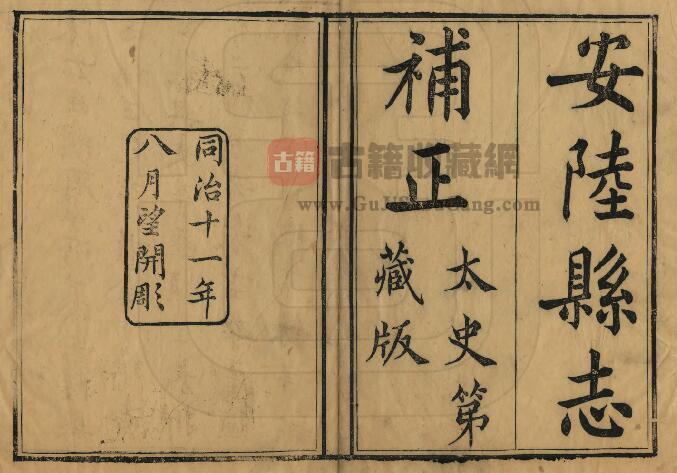 安陸縣志
補正
太史第
藏版
同治十一年
八月望開彫
古籍
古籍收藏網